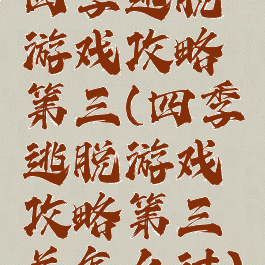 四季逃脱
游戏攻略
第三(四季
逃脱游戏
攻略第三